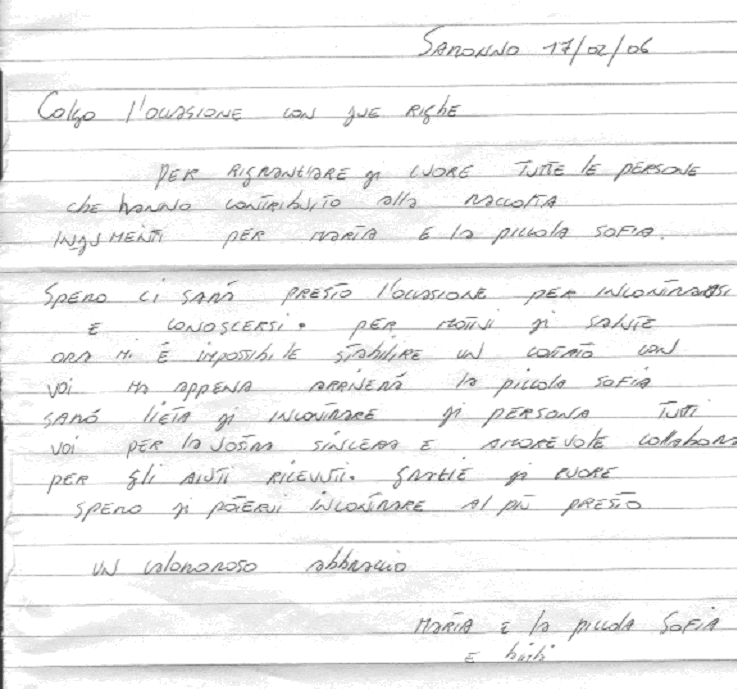 SARONNO 17/02/06
Colgo l'occasione con due RIGHE
PER RIGRANZIARE di CUORE TUTTE lE PERSONE
che hanno contribuito alla RACCOLTA
INDUMENTI PER MARTA E la piccola SOFIA.
SPERO CI SARÀ PRESTO l'occasione PER INCONTRARSI
E CONOSCERSI. PER MOTIVI di SALUTE
ORA MI È IMPOSSIBILE STABILIRE UN COTATO CON
VOI MA APPENA ARRIVERÀ la piccola SOFIA
SARÒ LIETA di INCONTRARE di PERSONA TUTTI
VOI PER la VOSTRA SINCERA E AMOREVOLE collabora
PER gli AIUTI RICEVUTI. GRAZIE di CUORE
SPERO di POTERVI INCONTRARE Al più PRESTO
UN CALOROROSO abbraccio
MARTA E la piccola SOFIA
E